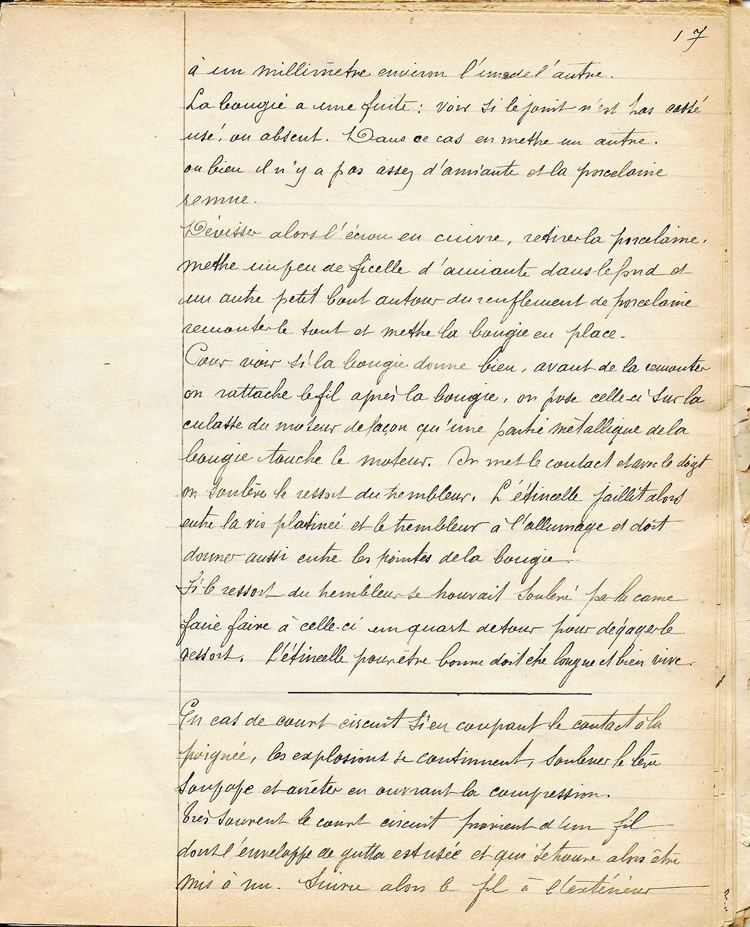 17
à un millimètre environ l'une de l'autre.
La bougie a une fuite : voir si le joint n'est pas cassé
usé, ou absent. Dans ce cas en mettre un autre.
ou bien il n'y a pas assez d'amiante et la porcelaine
remue.
Dévisser alors l'écrou en cuivre, retirer la porcelaine,
mettre un peu de ficelle d'amiante dans le fond et
un autre petit bout autour du renflement de porcelaine
remonter le tout et mettre la bougie en place.
Pour voir si la bougie donne bien, avant de la remonter
on rattache le fil après la bougie, on pose celle-ci sur la
culasse du moteur de façon qu'une partie métallique de la
bougie touche le moteur. On met le contact et avec le doigt
on soulève le ressort du trembleur. L'étincelle jaillit alors
entre la vis platinée et le trembleur à l'allumage et doit
donner aussi entre les pointes de la bougie
Si le ressort du trembleur se trouvait soulevé par la came
faire faire à celle-ci un quart de tour pour dégager le
ressort. L'étincelle pour être bonne doit être longue et bien vive.
En cas de court circuit si en coupant le contact à la
poignée, les explosions se continuent, soulever le lève
soupape et arrêter en ouvrant la compression.
Très souvent le court circuit provient d'un fil
dont l'enveloppe de gutta est usée et qui se trouve alors être
mis à nu. Suivre alors le fil à l'extérieur